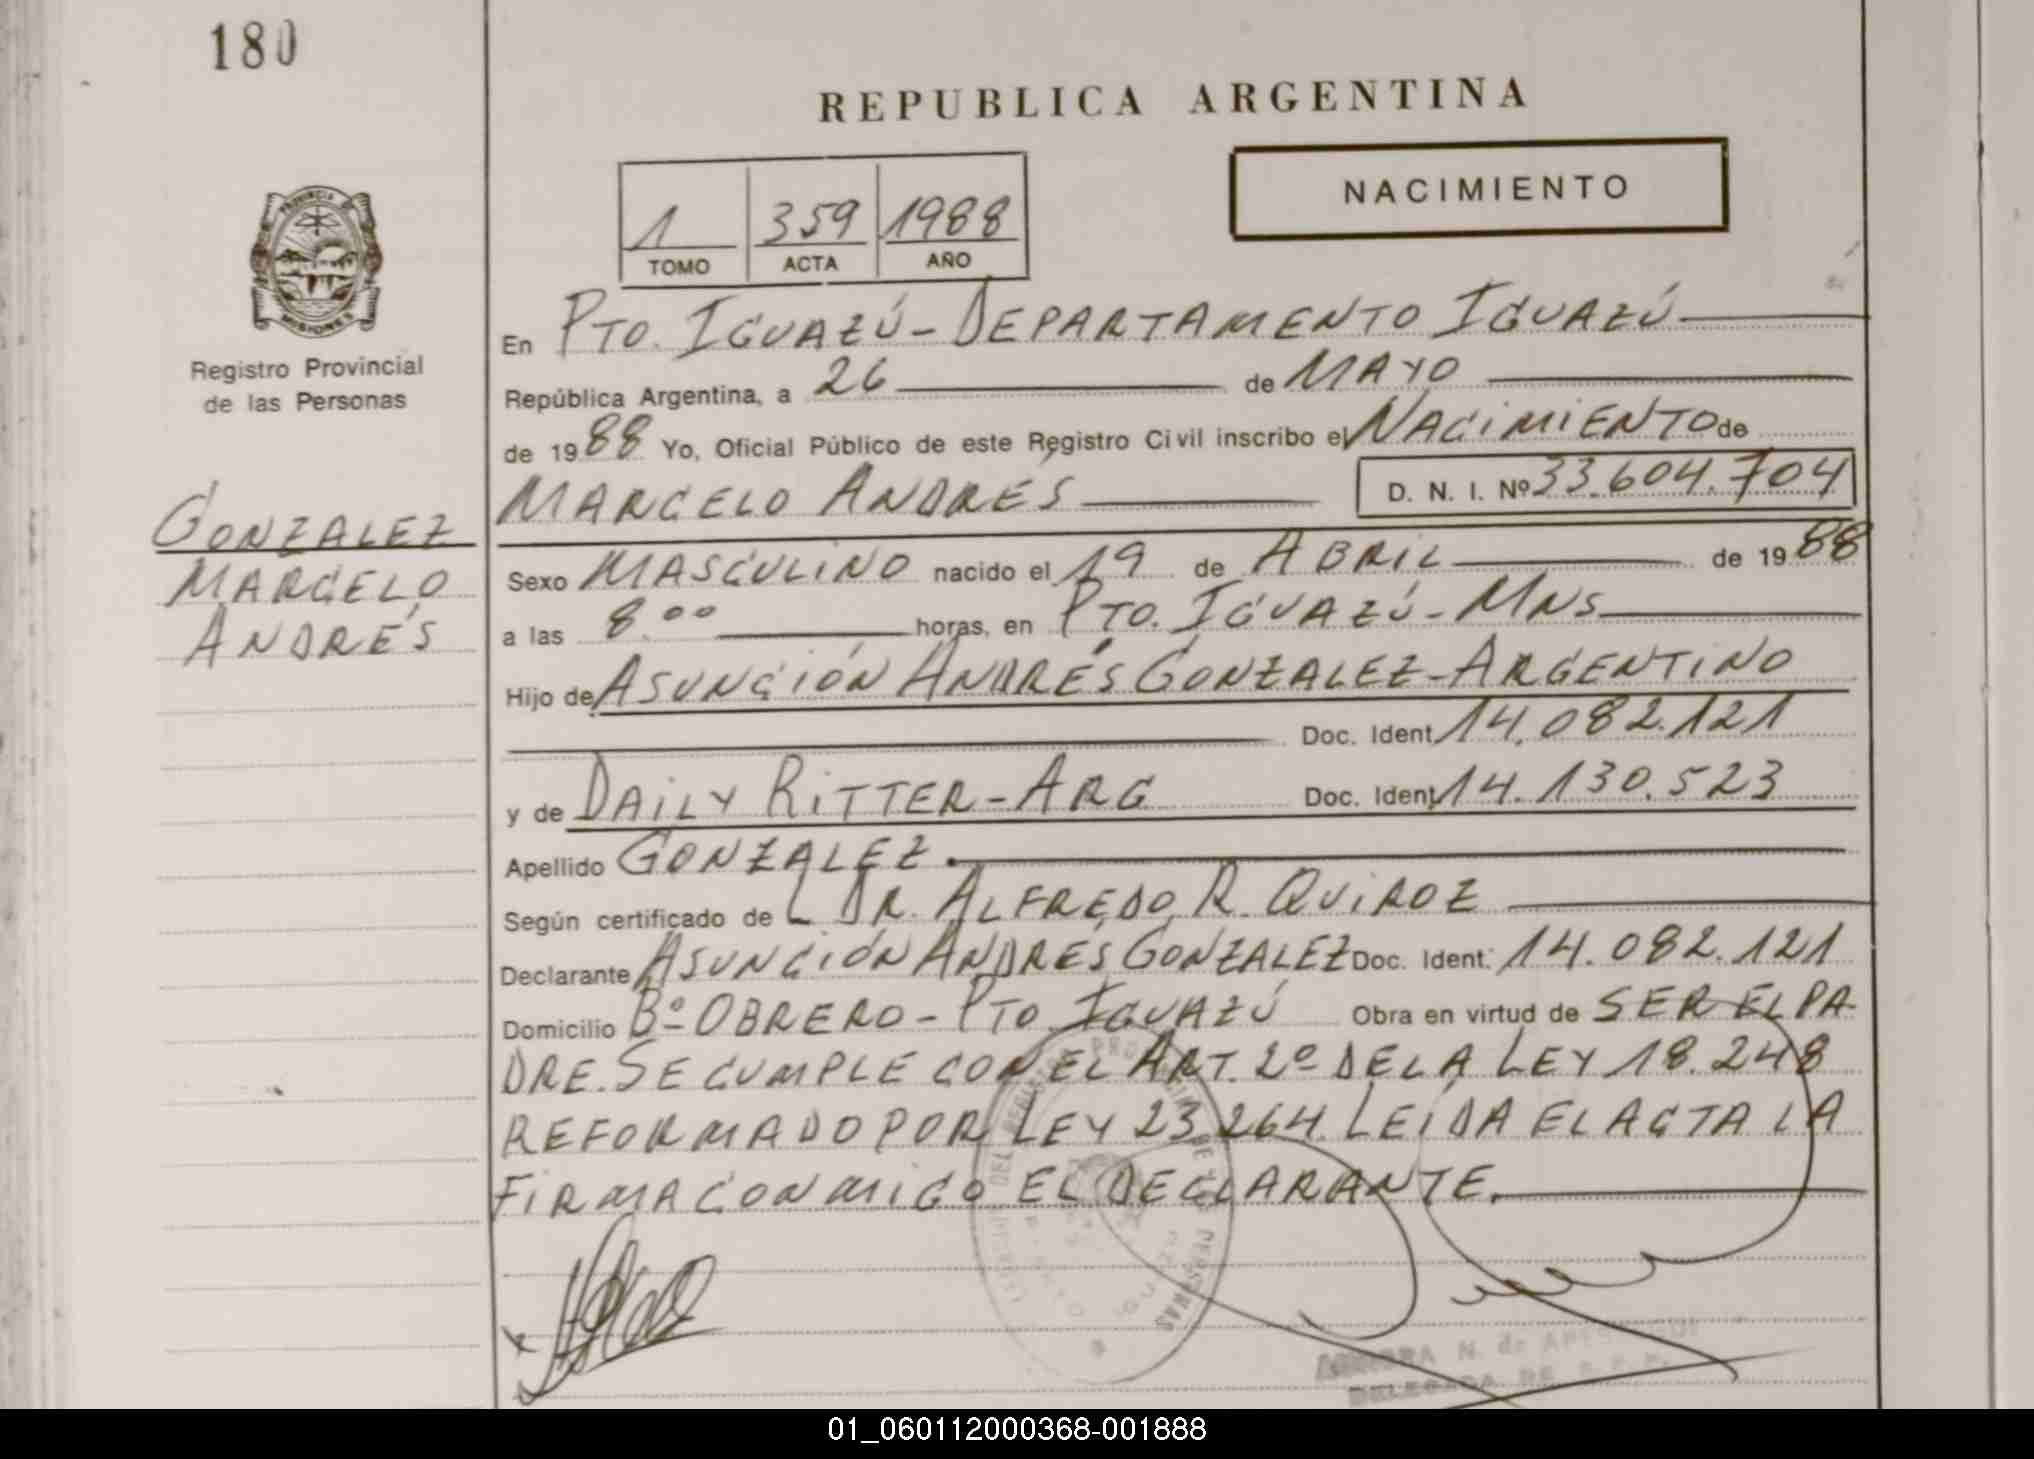 180
REPUBLICA ARGENTINA
NACIMIENTO
1 359 1988
TOMO ACTA AÑO
PROVINCIA
MISIONES
Registro Provincial
de las Personas
GONZALEZ
MARCELO
ANDRÉS
En PTO. IGUAZÚ - DEPARTAMENTO IGUAZÚ
República Argentina, a 26 de MAYO
de 1988 Yo, Oficial Público de este Registro Civil inscribo el NACIMIENTO de
MARCELO ANDRÉS D. N. I. Nº 33.604.704
Sexo MASCULINO nacido el 19 de ABRIL de 1988
a las 8.00 horas, en PTO. IGUAZÚ - MNS
Hijo de ASUNCIÓN ANDRÉS GONZALEZ - ARGENTINO
Doc. Ident. 14.082.121
y de DAILY RITTER - ARG Doc. Ident. 14.130.523
Apellido GONZALEZ.
Según certificado de DR. ALFREDO R. QUIROZ
Declarante ASUNCIÓN ANDRES GONZALEZ Doc. Ident. 14.082.121
Domicilio Bº OBRERO - PTO IGUAZÚ Obra en virtud de SER EL PA-
DRE. SE CUMPLE CON EL ART. 2º DE LA LEY 18.248
REFORMADO POR LEY 23.264. LEÍDA EL ACTA LA
FIRMA CONMIGO EL DECLARANTE.
DELEGADA DE
01_060112000368-001888